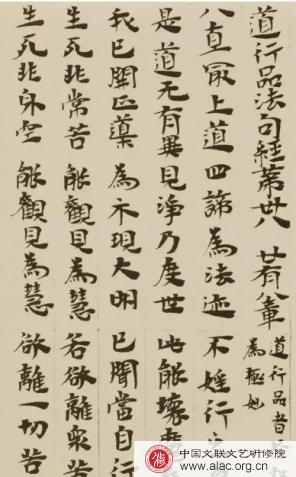 道行品法句經苐廿八 廿有八章 道行品者
為極妙
八直冣上道 四諦為法迹 不婬行之
是道无有異 見淨乃度世 此能壞
我已開正道 為示現大明 已聞當自行
生死非常苦 能觀見為慧 若欲離衆苦
生死非身空 能觀見為慧 欲離一切苦
中国文联文艺研修院
www.alac.org.cn